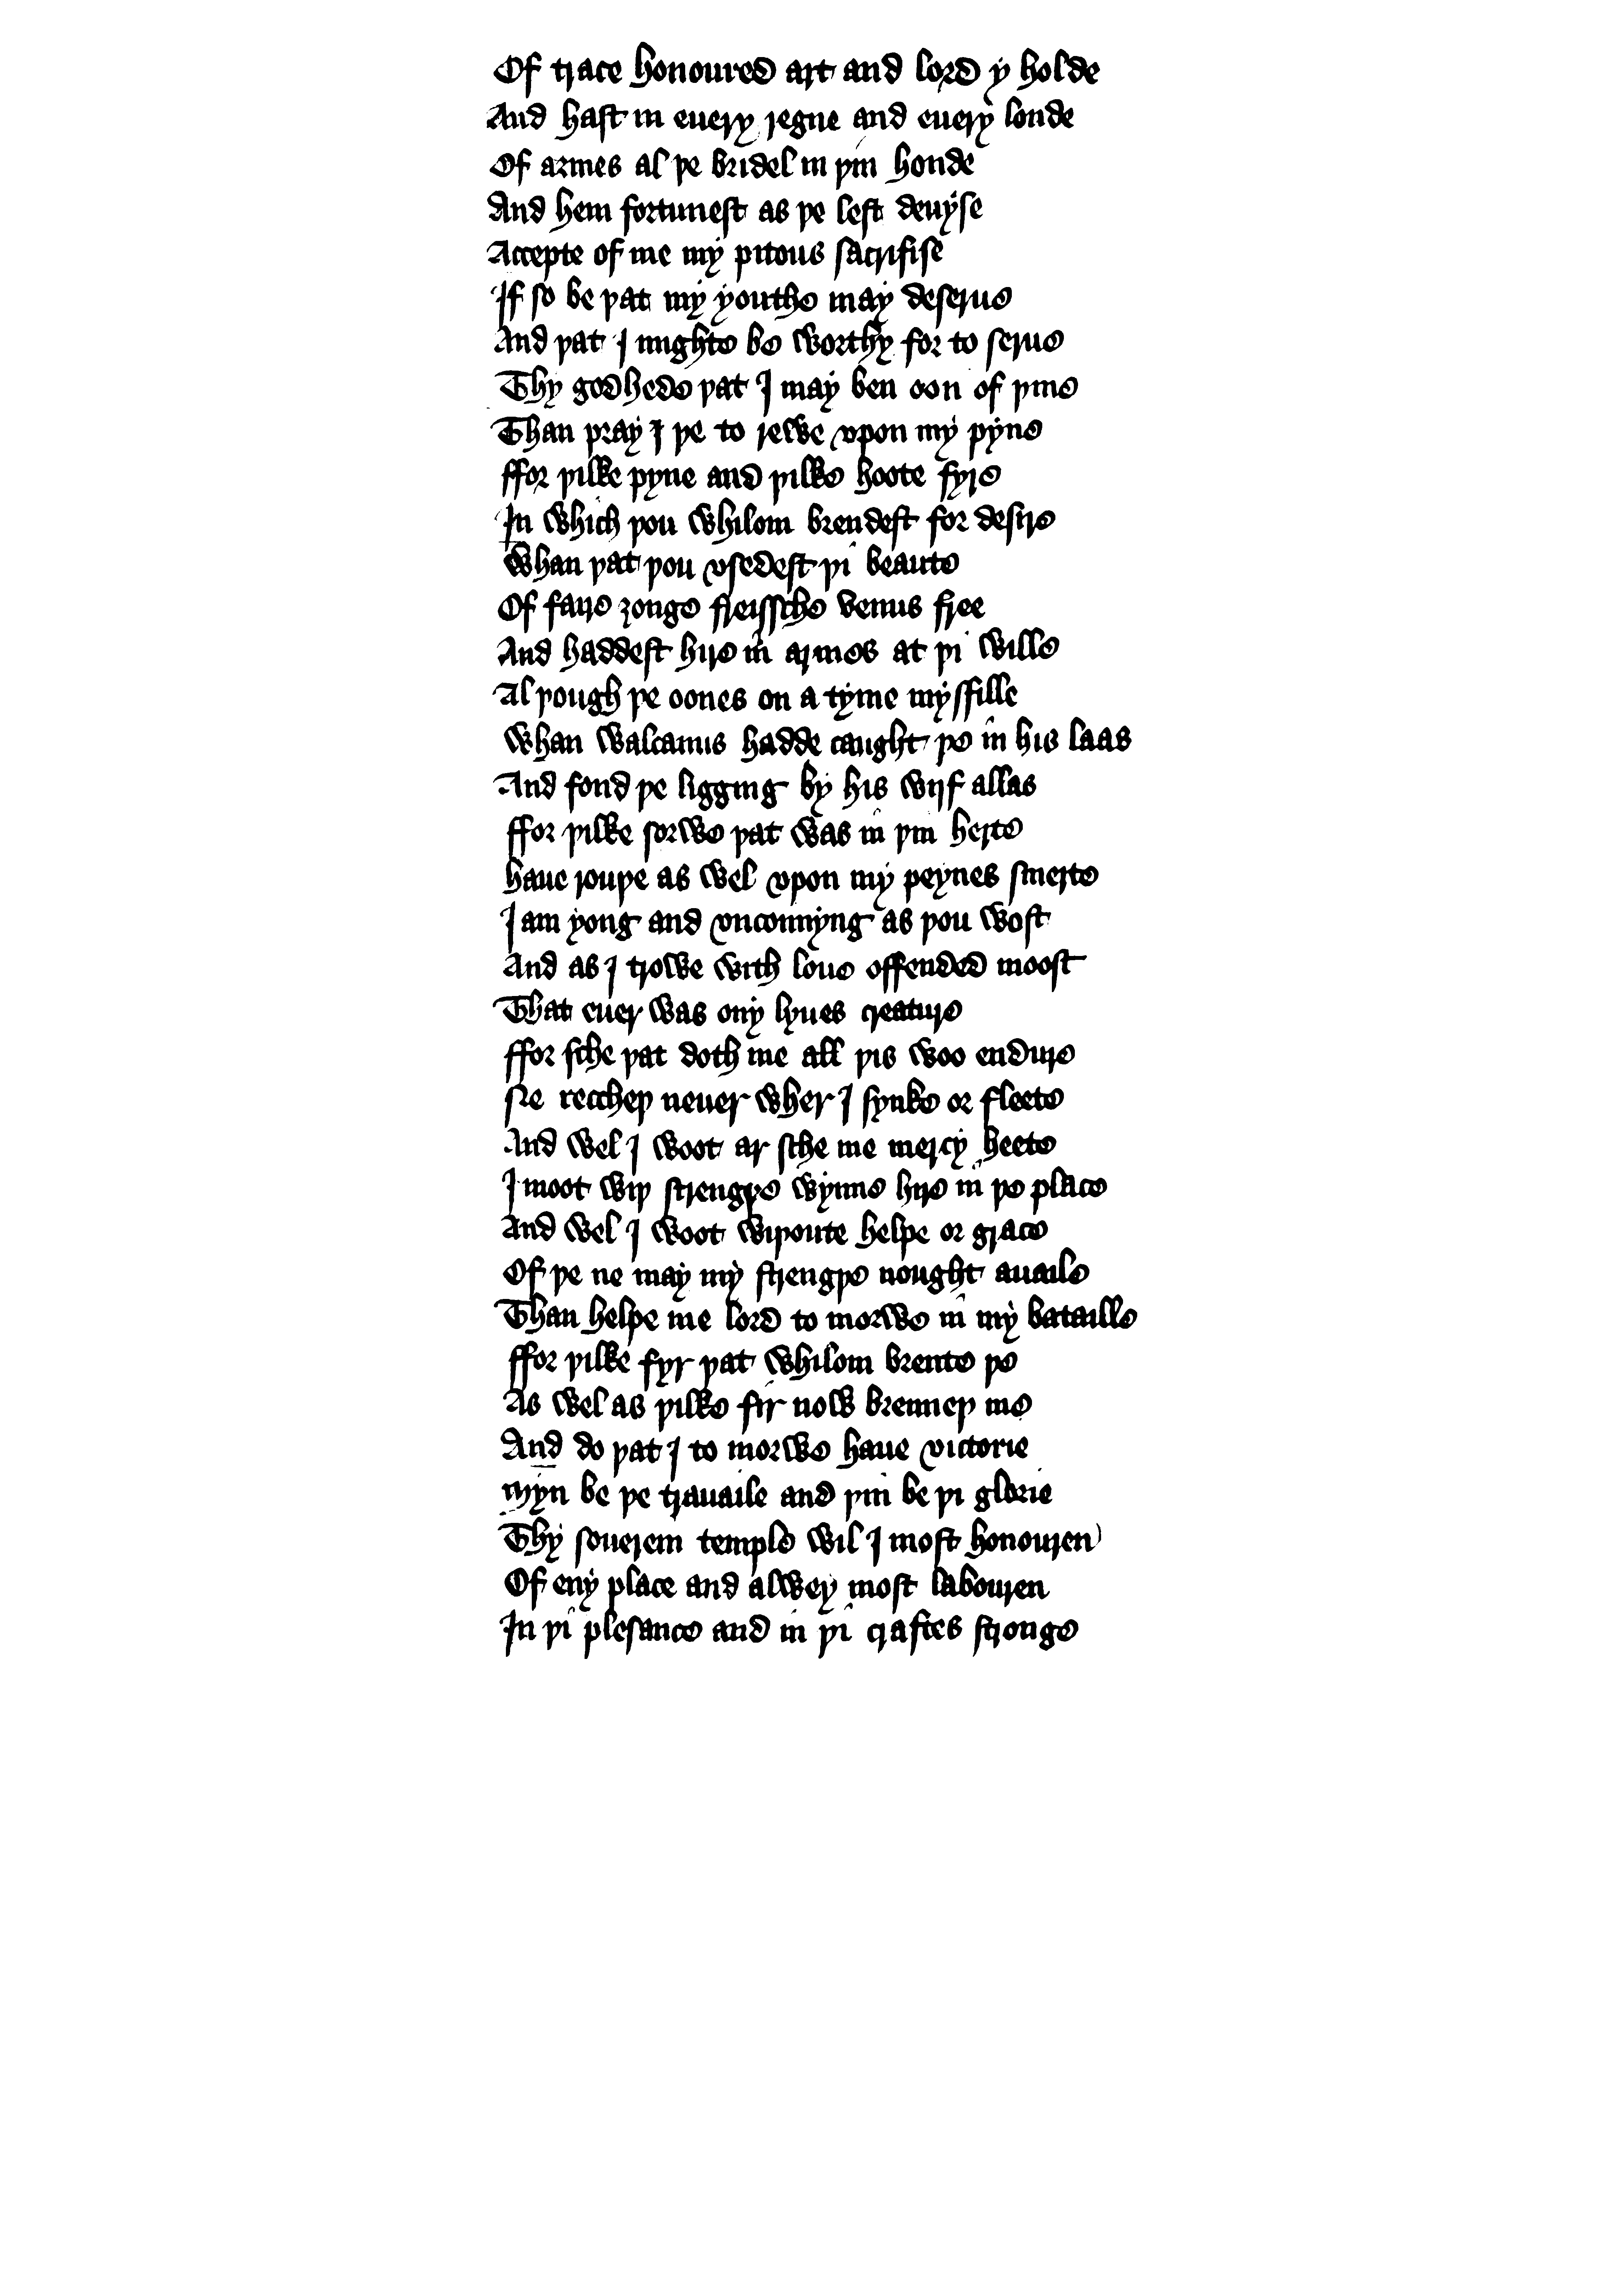 Of trace honoured art and lord y holde
And hast in euery regne and euery londe
Of armes al þe bridel in þin honde
And hem fortunest as þe lest deuyse
Accepte of me my pitous sacrifise
If so be þat my youthe may deserue
And þat I mighte be worthy for to serue
Thy godhede þat I may ben oon of þine
Than pray I þe to rewe vpon my pyne
ffor þilke pyne and þilke hoote fyre
In which þou whilom brendest for desire
Whan þat þou vsedest þi beaute
Of faire ȝonge freissche venus free
And haddest hire in armes at þi wille
Al þough þe oones on a tyme mysfille
Whan walcanus hadde caught þe in his laas
And fond þe ligging by his wijf allas
ffor þilke sorwe þat was in þin herte
haue rouþe as wel vpon my peynes smerte
I am yong and vnconnyng as þou wost
And as I trowe with loue offended moost
That euer was ony lyues creature
ffor sche þat doth me all þis woo endure
Ne reccheþ neuer wher I synke or fleete
And wel I woot ar sche me mercy heete
I moot wiþ strengþe wynne hire in þe place
And wel I woot wiþoute helpe or grace
Of þe ne may my strengþe nought auaile
Than helpe me lord to morwe in my bataille
ffor þilke fyr þat whilom brente þe
As wel as þilke fir now brenneþ me
And do þat I to morwe haue victorie
Myn be þe trauaile and þin be þi glorie
Thy souerein temple wil I most honouren
Of eny place and alwey most labouren
In þi plesance and in þi craftes stronge